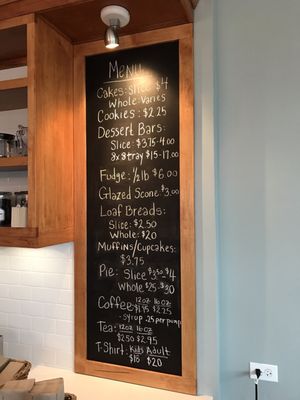 Menu
Cakes: Slice $4
Whole Varies
Cookies: $2.25
Dessert Bars:
Slice: $3.75-4.00
8x8 tray $15-17.00
Fudge: 1/2 lb $6.00
Glazed Scone $3.00
Loaf Breads:
Slice: $2.50
Whole: $20
Muffins/Cupcakes:
$3.75
Pie: Slice $3.50-$4
Whole $25-$30
Coffee 12oz 16oz
$1.75 $2.25
-syrup .25 per pump
Tea: 12oz 16oz
$2.50 $2.95
T-Shirt: Kids Adult
$16 $20